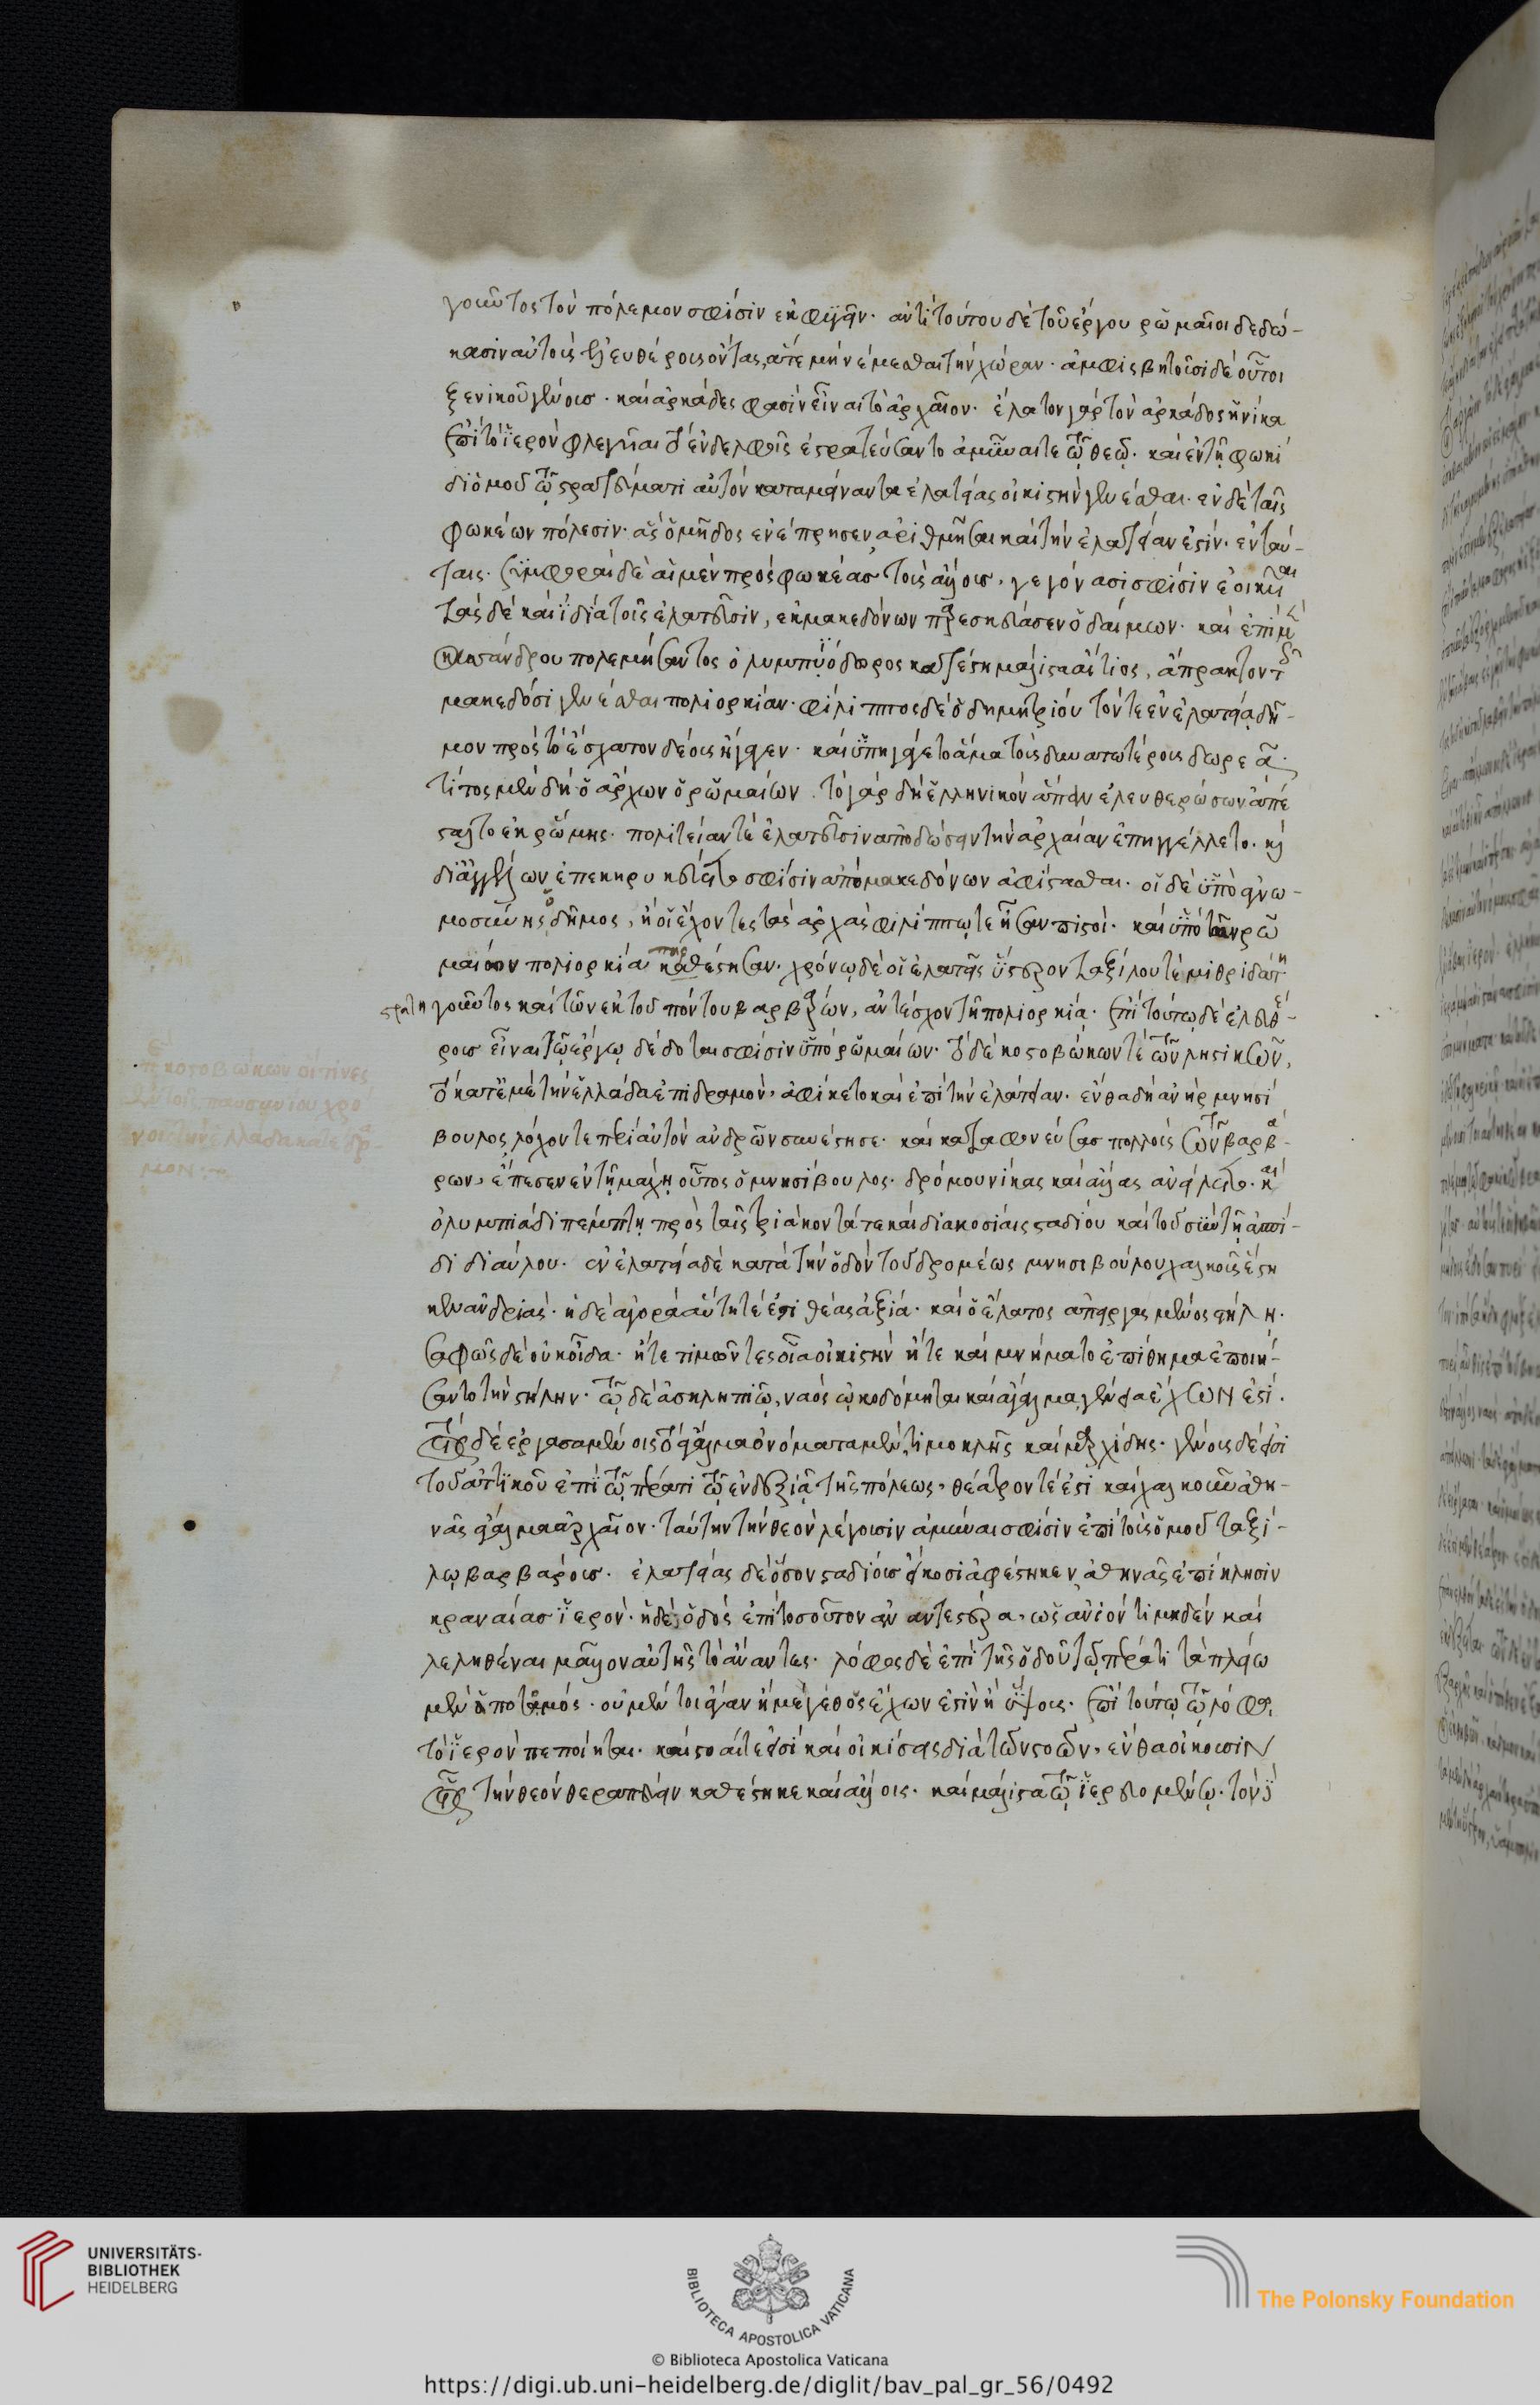 γοῦντος τὸν πόλεμον σφίσιν ἐκφυγεῖν· ἀντὶ τούτου δὲ τοῦ ἔργου ῥωμαῖοι δεδώ-
κασιν αὐτοῖς ἐλευθέροις ὄντας, ἀτε μὴ νέμεσθαι τὴν χώραν· ἀμφισβητοῦσι δὲ οὗτοι
ξενικοῦ γένους· καὶ ἀρκάδες φασὶν εἶναι τὸ ἀρχαῖον· ἔλατον γὰρ τὸν ἀρκάδος ἡνίκα
ἐπὶ τὸ ἱερὸν φλεγύαι τὸ ἐν δελφοῖς ἐστρατεύσαντο ἀμῦναι τε τῷ θεῷ· καὶ ἐν τῇ φωκί
δι ὁμοῦ τῷ στρατεύματι αὐτὸν καταμείναντα ἐλατείας οἰκιστὴν γενέσθαι· ἐν δὲ ταῖς
φωκέων πόλεσιν· ἃς ὁ μῆδος ἐνέπρησεν, ἀριθμῆσαι καὶ τὴν ἐλάτειαν ἐστίν· ἐν ταύ-
ταις· συμφοραὶ δὲ αἱ μὲν πρὸς φωκέας τοὺς ἄλλους, γεγόνασι σφίσιν ἐοικυῖαι
τὰς δὲ καὶ ἰδίᾳ τοῖς ἐλατεῦσιν, ἐκ μακεδόνων παρεσκεύασεν ὁ δαίμων· καὶ ἐπὶ μὲν
κασάνδρου πολεμήσαντος ὀλυμπιόδωρος κατέστη μάλιστα αἴτιος, ἄπρακτον τοῖς
μακεδόσι γενέσθαι πολιορκίαν· φίλιππος δὲ ὁ δημητρίου τόν τε ἐν ἐλατείᾳ δῆ-
μον πρὸς τὸ ἔσχατον δέους ἦγεν· καὶ ὑπηγάγετο ἅμα τοὺς δυνατωτέρους δωρεᾷ·
τίτος μὲν δὴ ὁ ἄρχων ὁ ῥωμαίων· τὸ γὰρ δὴ ἑλληνικὸν ἅπαν ἐλευθερώσων ἀπέ
σταλτο ἐκ ῥώμης· πολιτείαν τὲ ἐλατεῦσιν ἀποδώσειν τὴν ἀρχαίαν ἐπηγγέλλετο· καὶ
δι ἀγγέλων ἐπεκηρυκεύετο σφίσιν ἀπὸ μακεδόνων ἀφίστασθαι· οἱ δὲ ὑπὸ ἀγνω-
μοσύνης ὁ δῆμος, ἢ οἱ ἔχοντες τὰς ἀρχὰς φιλίππῳ τε ἦσαν πιστοί· καὶ ὑπὸ τῶν ῥω
μαίων πολιορκίᾳ κατέστησαν· χρόνῳ δὲ οἱ ἐλατεῖς ὕστερον ταξίλου τε μιθριδάτῃ
στρατηγοῦντος καὶ τῶν ἐκ τοῦ πόντου βαρβάρων, ἀντέσχον τῇ πολιορκίᾳ· ἐπὶ τούτῳ δὲ ἐλευθέ-
ροις εἶναι τῷ ἔργῳ δέδοται σφίσιν ὑπὸ ῥωμαίων· τὸ δὲ κοστοβώκων τε τῶν λῃστικῶν,
τὸ κατ' ἐμὲ τὴν ἑλλάδα ἐπιδραμόν, ἀφίκετο καὶ ἐπὶ τὴν ἐλάτειαν· ἔνθα δὴ ἀνὴρ μνησί
βουλος λόχον τε περὶ αὐτὸν ἀνδρῶν συνέστησε· καὶ καταφονεύσας πολλοὺς τῶν βαρβά-
ρων, ἔπεσεν ἐν τῇ μάχῃ οὗτος ὁ μνησίβουλος· δρόμου νίκας καὶ ἄλλας ἀνείλετο· καὶ
ὀλυμπιάδι πέμπτῃ πρὸς ταῖς τριάκοντά τε καὶ διακοσίαις σταδίου καὶ τοῦ σὺν τῇ ἀσπί-
δι διαύλου· ἐν ἐλατείᾳ δὲ κατὰ τὴν ὁδὸν τοῦ δρομέως μνησιβούλου χαλκοῦς ἕστη
κεν ἀνδριάς· ἡ δὲ ἀγορὰ αὐτή τε ἔστι θέας ἀξία· καὶ ὁ ἔλατος ἐπειργασμένος στήλῃ·
σαφῶς δὲ οὐκ οἶδα· εἴτε τιμῶντες οἷα οἰκιστὴν εἴτε καὶ μνήματο ἐπίθημα ἐποιή-
σαντο τὴν στήλην· τῷ δὲ ἀσκληπιῷ, ναὸς ᾠκοδόμηται καὶ ἄγαλμα γένεια ἔχων ἐστί·
τοῖς δὲ ἐργασαμένοις τὸ ἄγαλμα ὀνόματα μὲν, τιμοκλῆς καὶ τιμαρχίδης· γένους δέ εἰσι
τοῦ ἀττικοῦ ἐπὶ τῷ πέρατι τῷ ἐν δεξιᾷ τῆς πόλεως, θέατρόν τέ ἐστι καὶ χαλκοῦν ἀθη-
νᾶς ἄγαλμα ἀρχαῖον· ταύτην τὴν θεὸν λέγουσιν ἀμῦναι σφίσιν ἐπὶ τοὺς ὁμοῦ ταξί-
λῳ βαρβάρους· ἐλατείας δὲ ὅσον σταδίους εἴκοσι ἀφέστηκεν ἀθηνᾶς ἐπίκλησιν
κραναίας ἱερόν· ἡ δὲ ὁδὸς ἐπὶ τοσοῦτον ἀν αντεστέρα, ὡς ἀνιόντι μηδέν καὶ
λεληθέναι μᾶλλον αὐτῆς τὸ ἄναντες· λόφος δὲ ἐπὶ τῆς ὁδοῦ τῷ πέρατι τὰ πλείω
μὲν ἀπότομός· οὐ μέντοι ἄγαν ἢ μεγέθους ἔχων ἐστὶν ἢ ὕψους· ἐπὶ τούτῳ τῷ λόφῳ
τὸ ἱερὸν πεποίηται· καὶ στοαί τε εἰσὶ καὶ οἰκίσεις διὰ τῶν στοῶν, ἔνθα οἰκοῦσιν
τοῖς τὴν θεὸν θεραπεύειν καθέστηκε καὶ ἄλλοις· καὶ μάλιστα τῷ ἱερωμένῳ· τὸν ϊ
τῶν κοστοβώκων οἵτινες
ἐν τοῖς παυσανίου χρό
νοις τὴν ἑλλάδα κατέδρα
μον:~
UNIVERSITÄTS-
BIBLIOTHEK
HEIDELBERG
BIBLIOTECA APOSTOLICA VATICANA
© Biblioteca Apostolica Vaticana
The Polonsky Foundation
https://digi.ub.uni-heidelberg.de/diglit/bav_pal_gr_56/0492